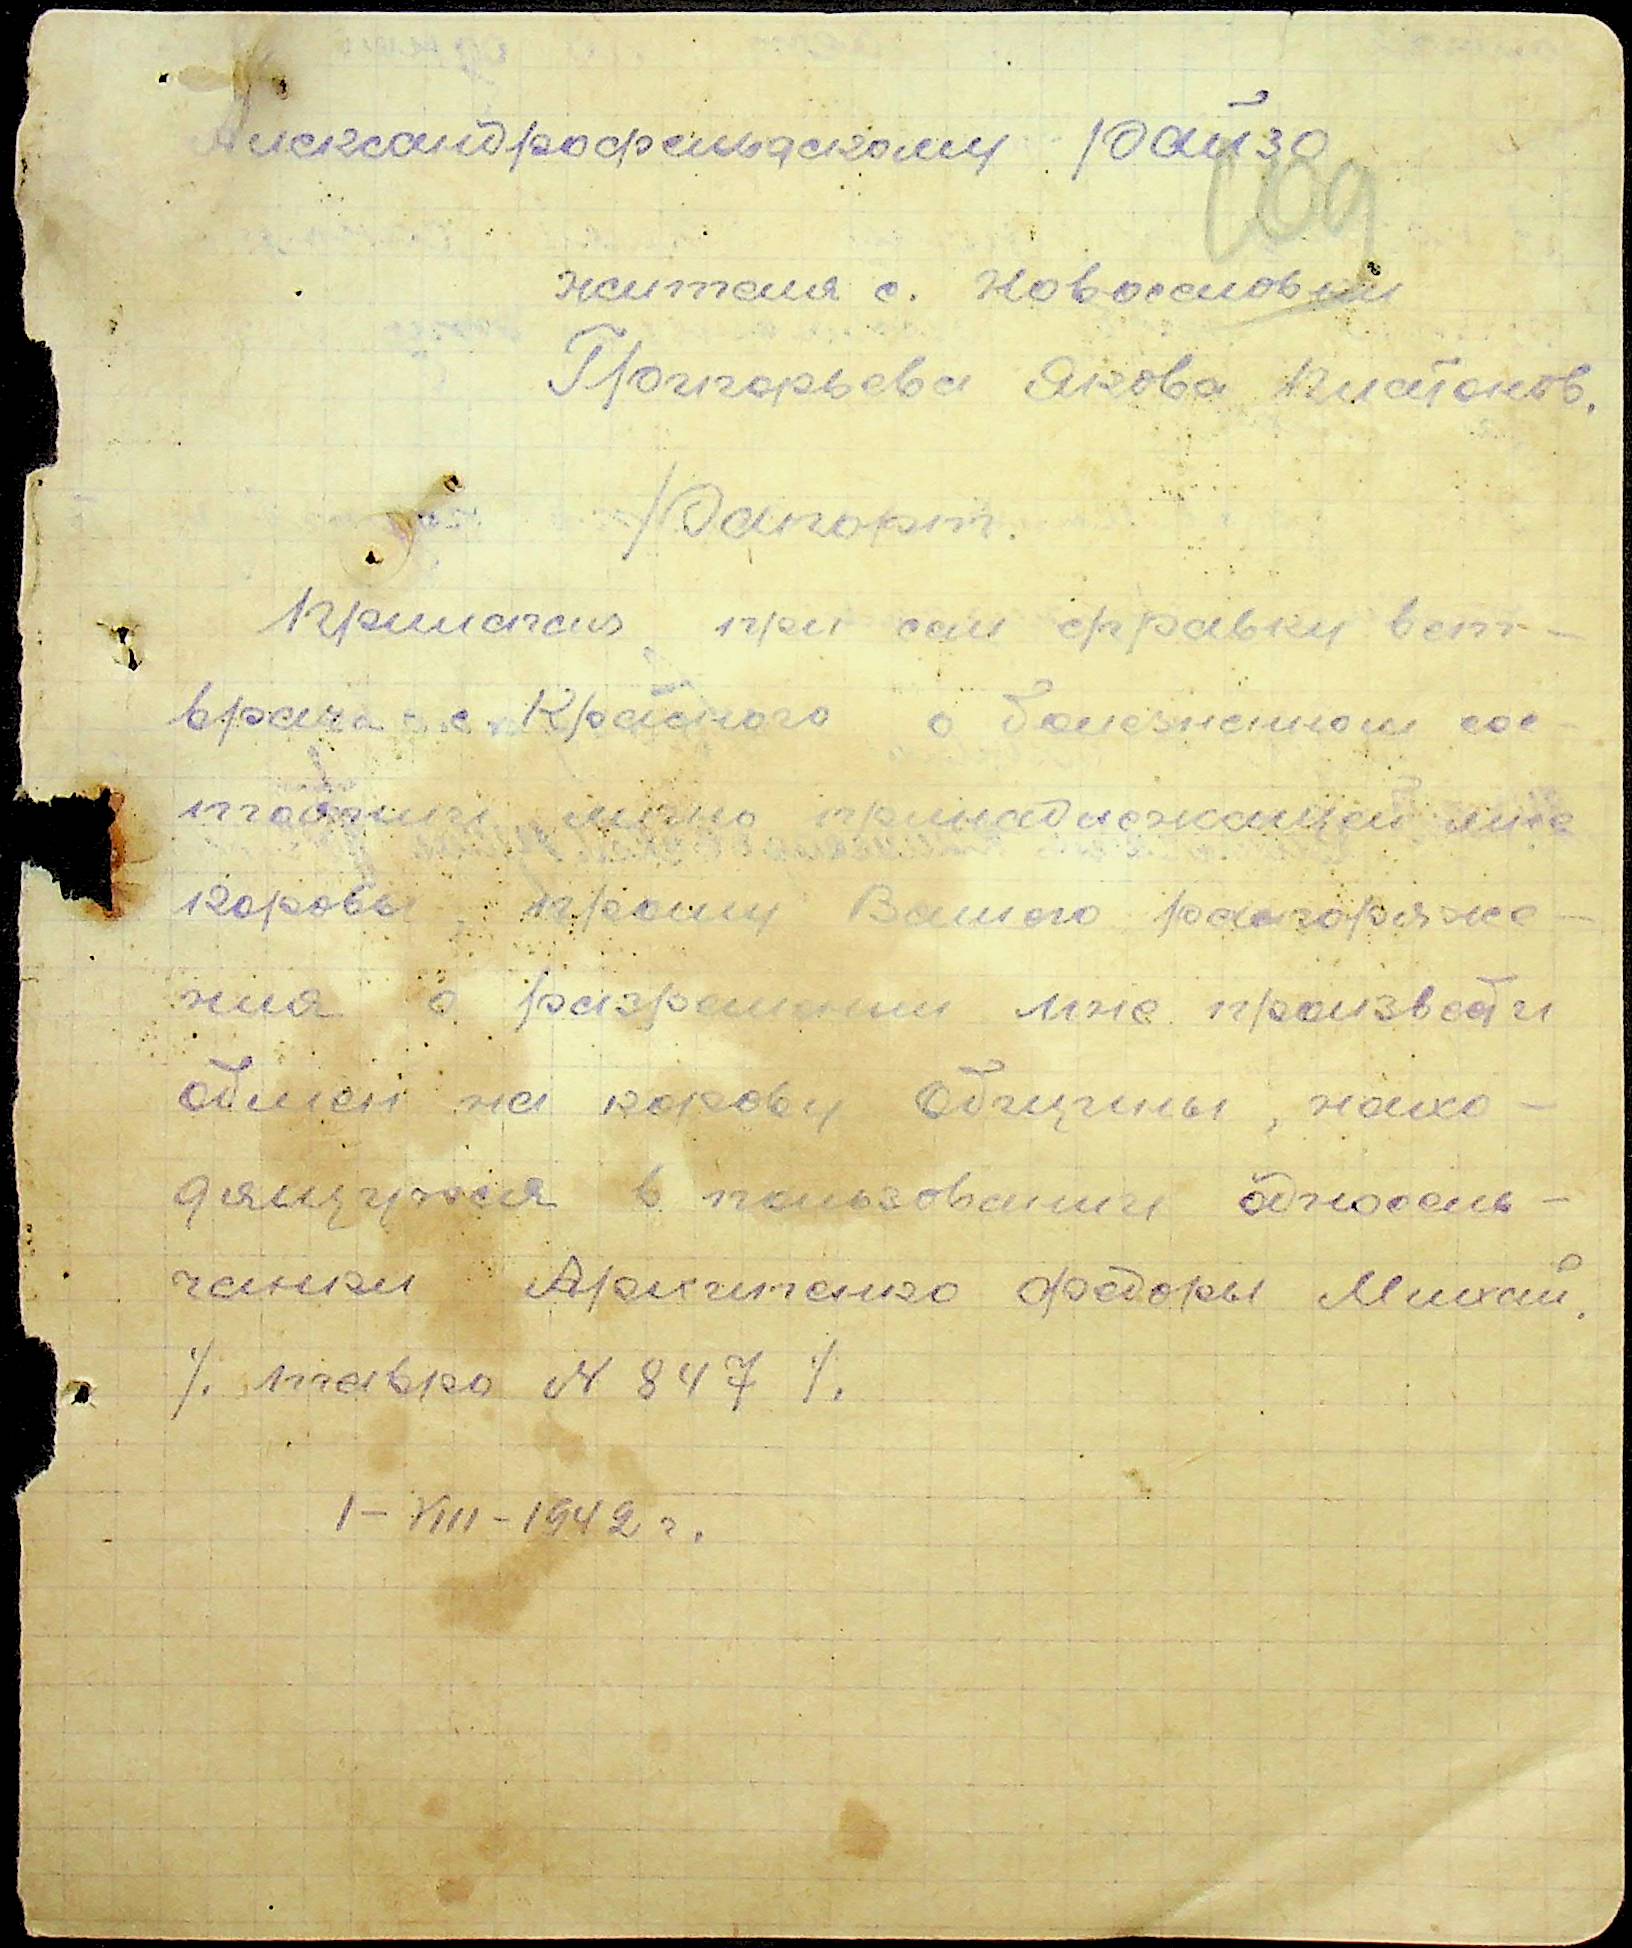 Александрофельдскому Райзо
109
жителя с. Новоселовки
Григорьева Якова Платонов.
Рапорт.
Прилагая при сем справку вет-
врача с. Красного о болезненном сос-
тоянии лично принадлежащей мне
коровы, прошу Вашего распоряже-
ния о разрешении мне произвести
обмен на корову Общины, нахо-
дящуюся в пользовании односель-
чанки Архипенко Федоры Михай.
/. тавро № 847 /.
1-VIII-1942 г.